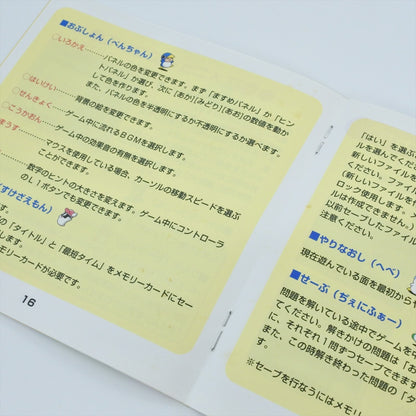 ■おぷしょん（ぺんちゃん）
○いろかえ………パネルの色を変更できます。まず「ますめパネル」か「ヒン
トパネル」が選び、次に［あか］［みどり］［あお］の数値を動か
して色を作ります。
また、パネルの色を半透明にするか不透明にするか選べます。
○はいけい………背景の絵を変更できます。
○せんきょく………ゲーム中に流れるBGMを選択します。
○こうかおん………ゲーム中の効果音の有無を選択します。
まうす………マウスを使用している場合、カーソルの移動スピードを選ぶ
ことができます。
数字のヒントの大きさを変えます。ゲーム中にコントローラ
のL1ボタンでも変更できます。
すけざえもん）
の「タイトル」と「最短タイム」をメモリーカードにセー
します。
モリーカードが必要です。
16
「はい」を選ぶ
ルを選んでくだ
新しいファイル
ください。ファイ
（新しいファイルを作
ロック使用します。
ルは作成できません。）
以前セーブしたファイ
注意ください。
■やりなおし（へべ）
現在遊んでいる面を最初から
■せーぶ（ぢぇにふぁー）
問題を解いている途中でゲームを
てください。解きかけの問題は「お
に、それぞれ1問ずつセーブできま
また、この時解き終わった問題の「タ
※セーブを行なうにはメモリ